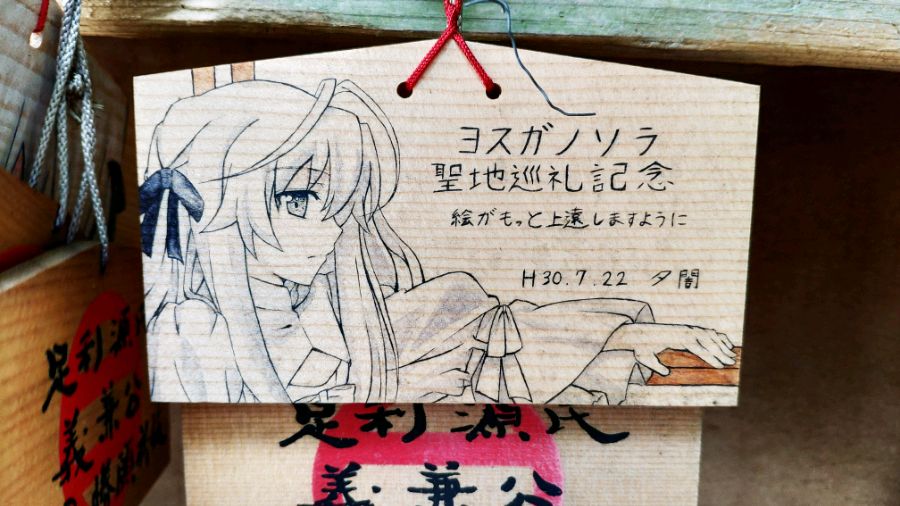 ヨスガノソラ
聖地巡礼記念
絵がもっと上遠しますように
H30.7.22 夕闇
足利源氏
義兼公
足利源氏
義兼公
勝願